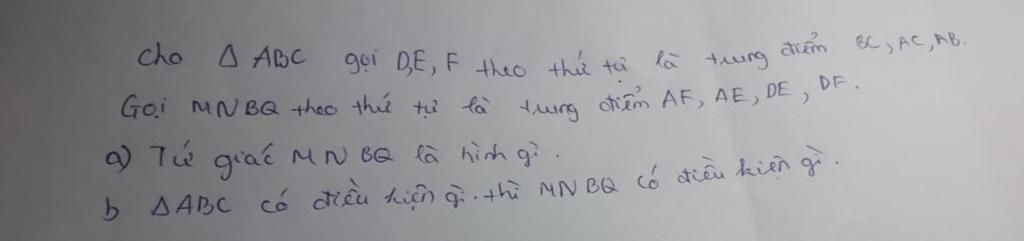 Cho Δ ABC gọi D,E, F theo thứ tự là trung điểm BC, AC, AB.
Gọi MNBQ theo thứ tự là trung điểm AF, AE, DE, DF.
a) Tứ giác MNBQ là hình gì.
b ΔABC có điều kiện gì. thì MNBQ có điều kiện gì.